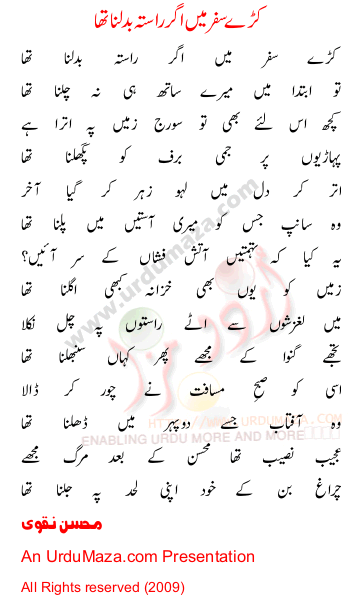 کڑے سفر میں اگر راستہ بدلنا تھا
کڑے سفر میں اگر راستہ بدلنا تھا
تو ابتدا میں میرے ساتھ ہی نہ چلنا تھا
کچھ اس لئے بھی تو سورج زمیں پہ اترا ہے
پہاڑیوں پر جمی برف کو پگھلنا تھا
اتر کر دل میں لہو زہر کر گیا آخر
وہ سانپ جس کو میری آستیں میں پلنا تھا
یہ کیا کہ تہمتیں آتش فشاں کے سر آئیں؟
زمیں کو یوں بھی خزانہ کبھی اگلنا تھا
میں لغزشوں سے اٹے راستوں پہ چل نکلا
تجھے گنوا کے مجھے پھر کہاں سنبھلنا تھا
اسی کو صبحِ مسافت نے چور کر ڈالا
وہ آفتاب جسے دوپہر میں ڈھلنا تھا
عجیب نصیب تھا محسن کے بعد مرگ مجھے
چراغ بن کے خود اپنی لحد پہ جلنا تھا
محسن نقوی
An UrduMaza.com Presentation
All Rights reserved (2009)
www.urdumaza.com
اُردُو مزا
HTTP://WWW.URDUMAZA.COM
ENABLING URDU MORE AND MORE